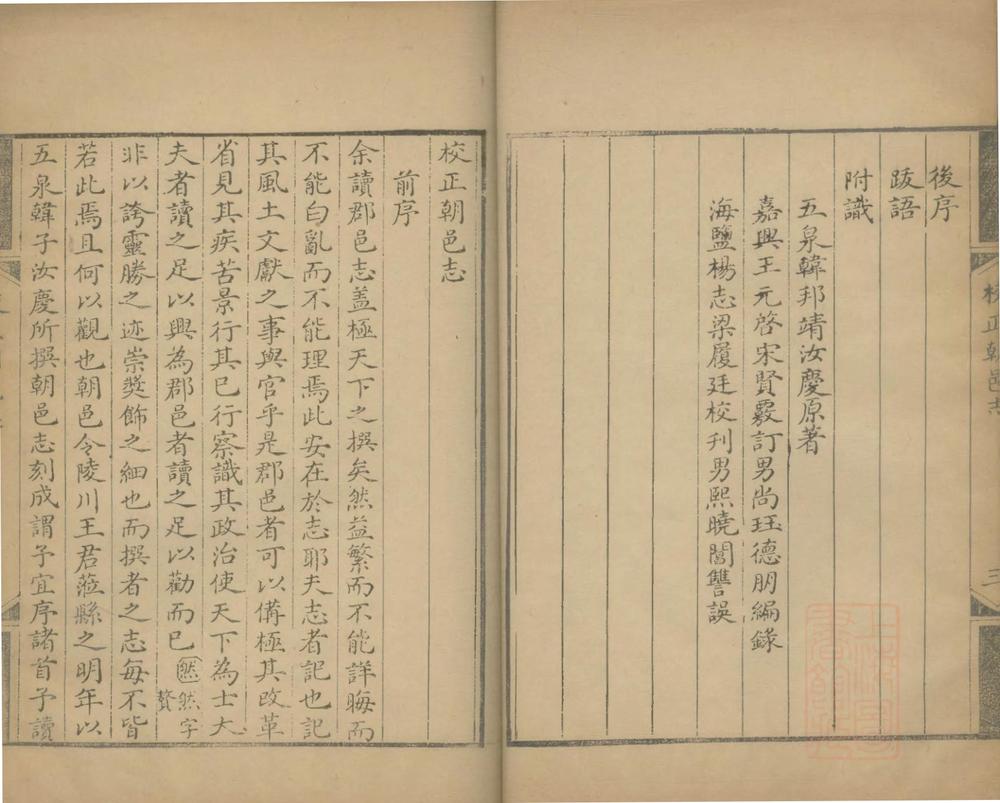 後序
跋語
附識
五泉韓邦靖汝慶原著
嘉興王元啓宋賢覈訂男尚珏德朋編錄
海鹽楊志梁履廷校刊男熙曉閶讐誤
校正朝邑志
前序
余讀郡邑志盖極天下之撰矣然益繁而不能詳晦而
不能白亂而不能理焉此安在於志耶夫志者記也記
其風土文獻之事與官乎是郡邑者可以備極其改革
省見其疾苦景行其已行察識其政治使天下為士大
夫者讀之足以興為郡邑者讀之足以勸而已然然字贅
非以誇靈勝之迹崇奬飾之細也而撰者之志每不皆
若此焉且何以觀也朝邑令陵川王君蒞縣之明年以
五泉韓子汝慶所撰朝邑志刻成謂予宜序諸首予讀
校正朝邑志
三